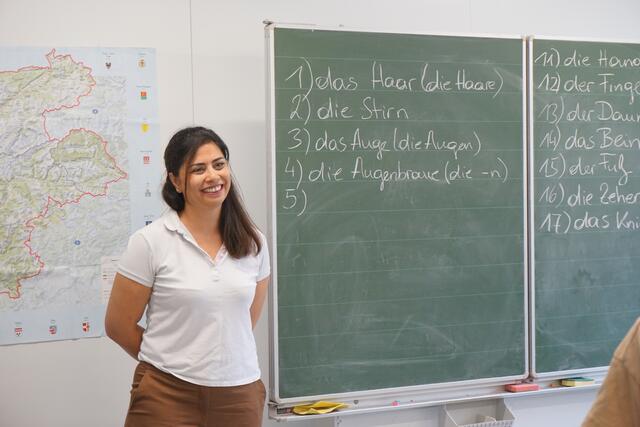 1) das Haar (die Haare)
2) die Stirn
3) das Auge (die Augen)
4) die Augenbraue (die -n)
5)
11) die
12) der
13) der
14) das Bein
15) der Fuß
16) die
17) das